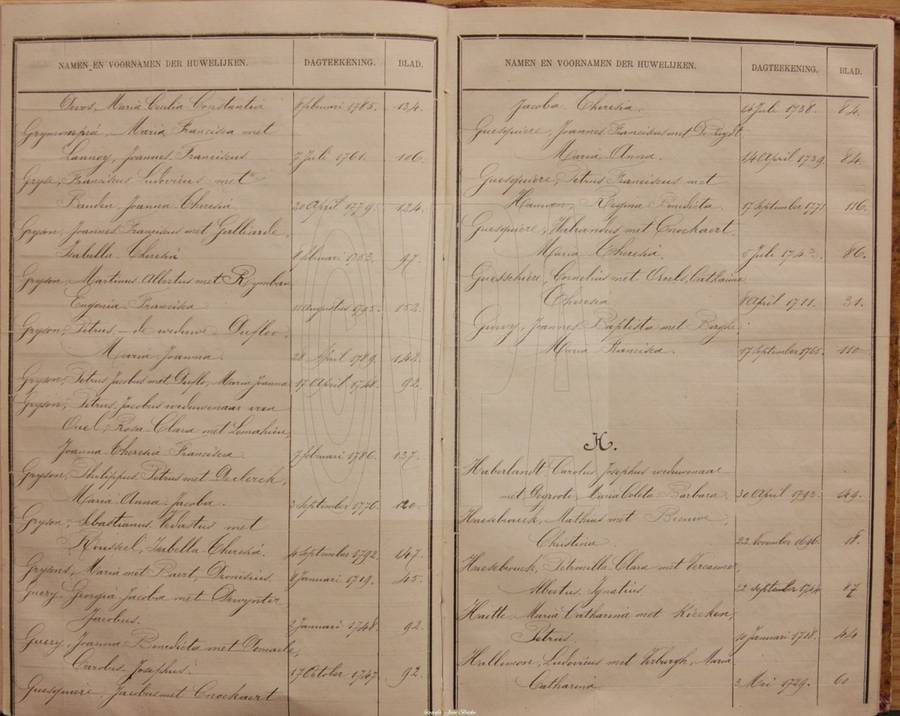 NAMEN EN VOORNAMEN DER HUWELIJKEN. DAGTEEKENING. BLAD.
Devos, Maria Cecilia Constantia 8 februari 1785. 134.
Maria Francisca met
Lannoy, Joannes Franciscus 7 Juli 1761. 106.
Gryse, Franciscus Ludovicus met
Joanna Theresia 20 April 1779. 124.
Gryson, Joannes Franciscus met Galliaerde,
Isabella Theresia 8 februari 1753. 97.
Gryson, Martinus Albertus met
Eugenia Francisca 11 Augustus 1795. 152.
Gryson, Petrus, de weduwe
Maria Joanna 28 April 1789. 142.
Gryson, Petrus Jacobus met Duflo, Maria Joanna 17 April 1748. 92.
Gryson, Petrus Jacobus weduwenaar van
Rosa Clara met Lemahieu,
Joanna Theresia Francisca 7 februari 1786. 137.
Gryson, Philippus Petrus met Declerck,
Maria Anna Jacoba. 3 September 1776. 120.
Gryson, Sebastianus Vedastus met
Isabella Theresia. 4 September 1792. 147.
Grysons, Maria met Baert, Dionisius. 8 Januari 1719. 45.
Guery Georgia Jacoba met Dewynter
Jacobus. 2 Januari 1748. 92.
Guery, Joanna Benedicta met
Carolus Josephus. 17 October 1747. 92.
Guesquiere Jacobus met Cnockaert
NAMEN EN VOORNAMEN DER HUWELIJKEN. DAGTEEKENING. BLAD.
Jacoba Theresia. 26 Juli 1738. 84.
Guesquiere, Joannes Franciscus met
Maria Anna. 14 April 1739. 84.
Guesquiere, Petrus Franciscus met
Regina Benedicta 17 September 1771. 116.
Guesquiere, met Cnockaert.
Maria Theresia. 5 Juli 86.
Cornelius met Catharina
Theresia 8 April 1711. 31.
Joannes Baptista met
Maria Francisca. 17 September 1765. 110.
H.
Haberlandt Carolus Josephus weduwenaar
met Degroote, Maria Coleta Barbara. 30 April 1793. 149.
Haesebrouck, Mathius met
Christina 22 November 1696. 18.
Haesebrouck, Petronilla Clara met
Albertus Ignatius 22 September 87
Haelle Maria Catharina met
Petrus. 10 Januari 1718. 44
Ludovicus met Verburgh, Maria
Catharina 3 Mei 1729. 60